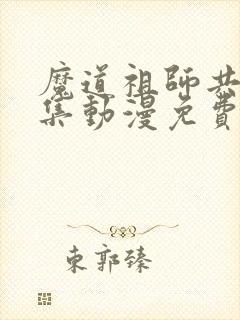 魔道祖師共
集動漫免費
東郭臻